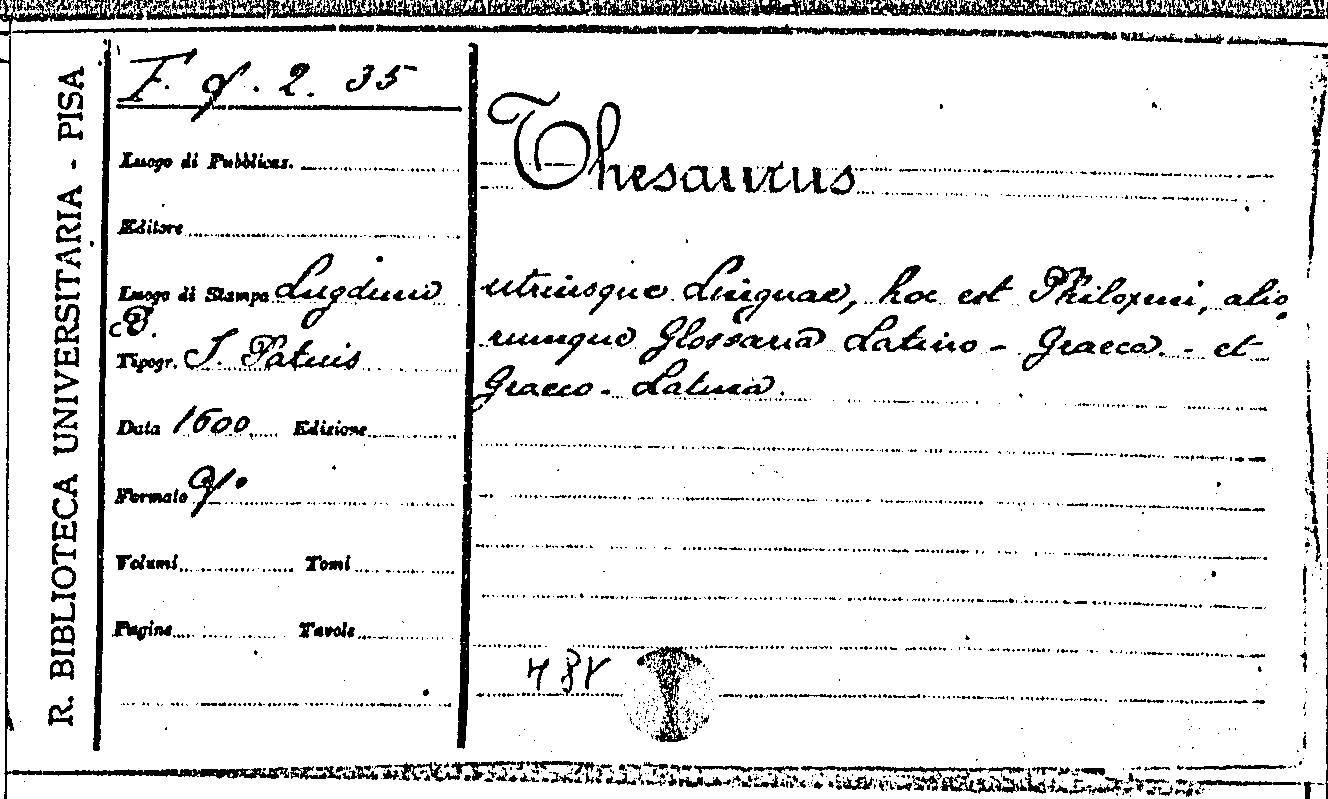 R. BIBLIOTECA UNIVERSITARIA - PISA
F. g. 2. 35
Luogo di Pubblicaz.
Editore
Luogo di Stampa Lugduni
B.
Tipogr. J. Patuis
Data 1600 Edizione
Formato 4°
Volumi Tomi
Pagine Tavole
Thesaurus
utriusque Linguae, hoc est Philoxeni, alio,
rumque Glossaria Latino - Graeca. - et
Graeco - Latina.